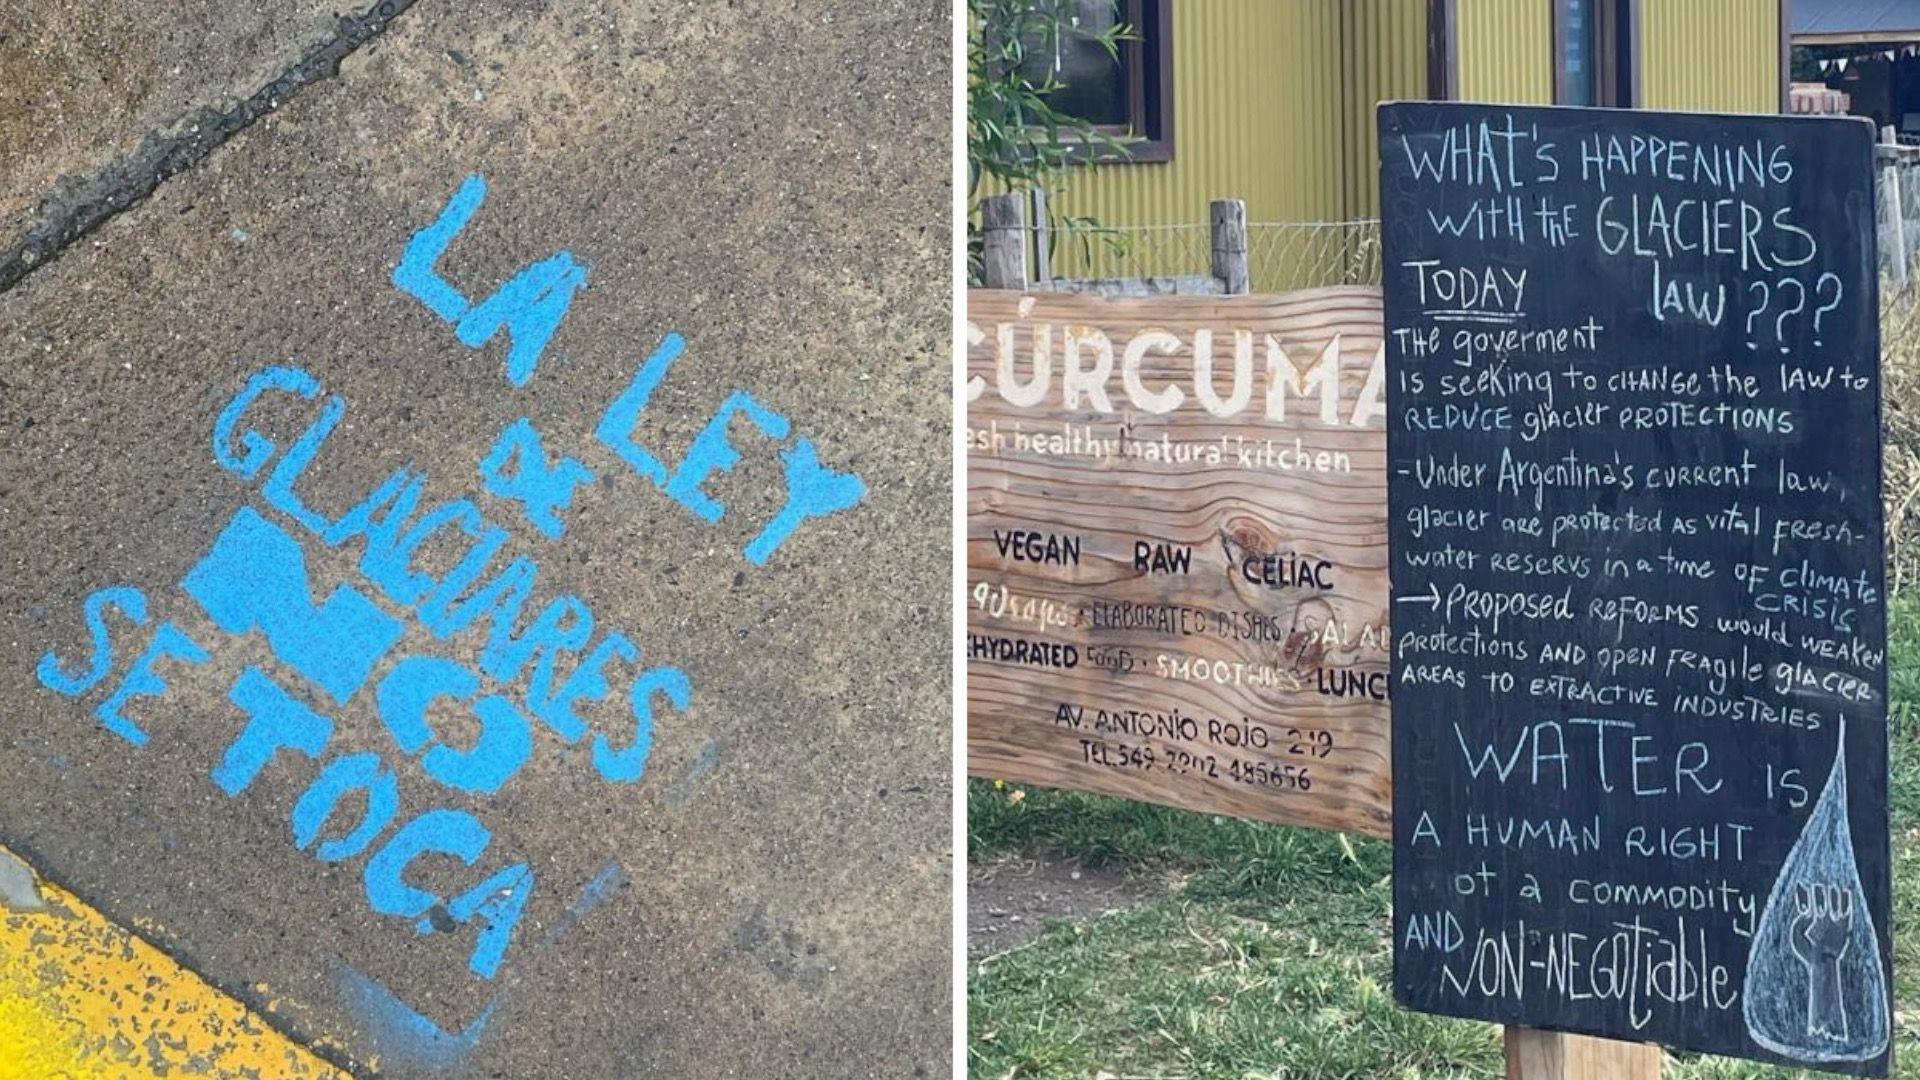 LA LEY
DE
GLACIARES
NO
SE TOCA
CÚRCUMA
esh healthy natural kitchen
VEGAN RAW CELIAC
ELABORATED DISHES · SALAD
EHYDRATED FOOD · SMOOTHIES · LUNCH
AV. ANTONIO ROJO 219
TEL.549 2902 485656
WHAT'S HAPPENING
WITH tHE GLACIERS
TODAY LAW ???
THE goverment
IS seeKing to CHANGe the lAW to
REDUCE glAcier PROTECTIONS
-Under Argentina's CURRENT law,
glacier are protected AS vital FResh-
water RESERVS in a time OF CLIMATe
CRISIS
→ PROPOSED REFORMS would WEAKEN
PROTECTIONS AND OPEN FRAGILE glACIER
AREAS TO EXTRACTIVE INDUSTRIES
WATER IS
A HUMAN RIGHT
ot a COMMODITY
AND NON-NEGOtiable